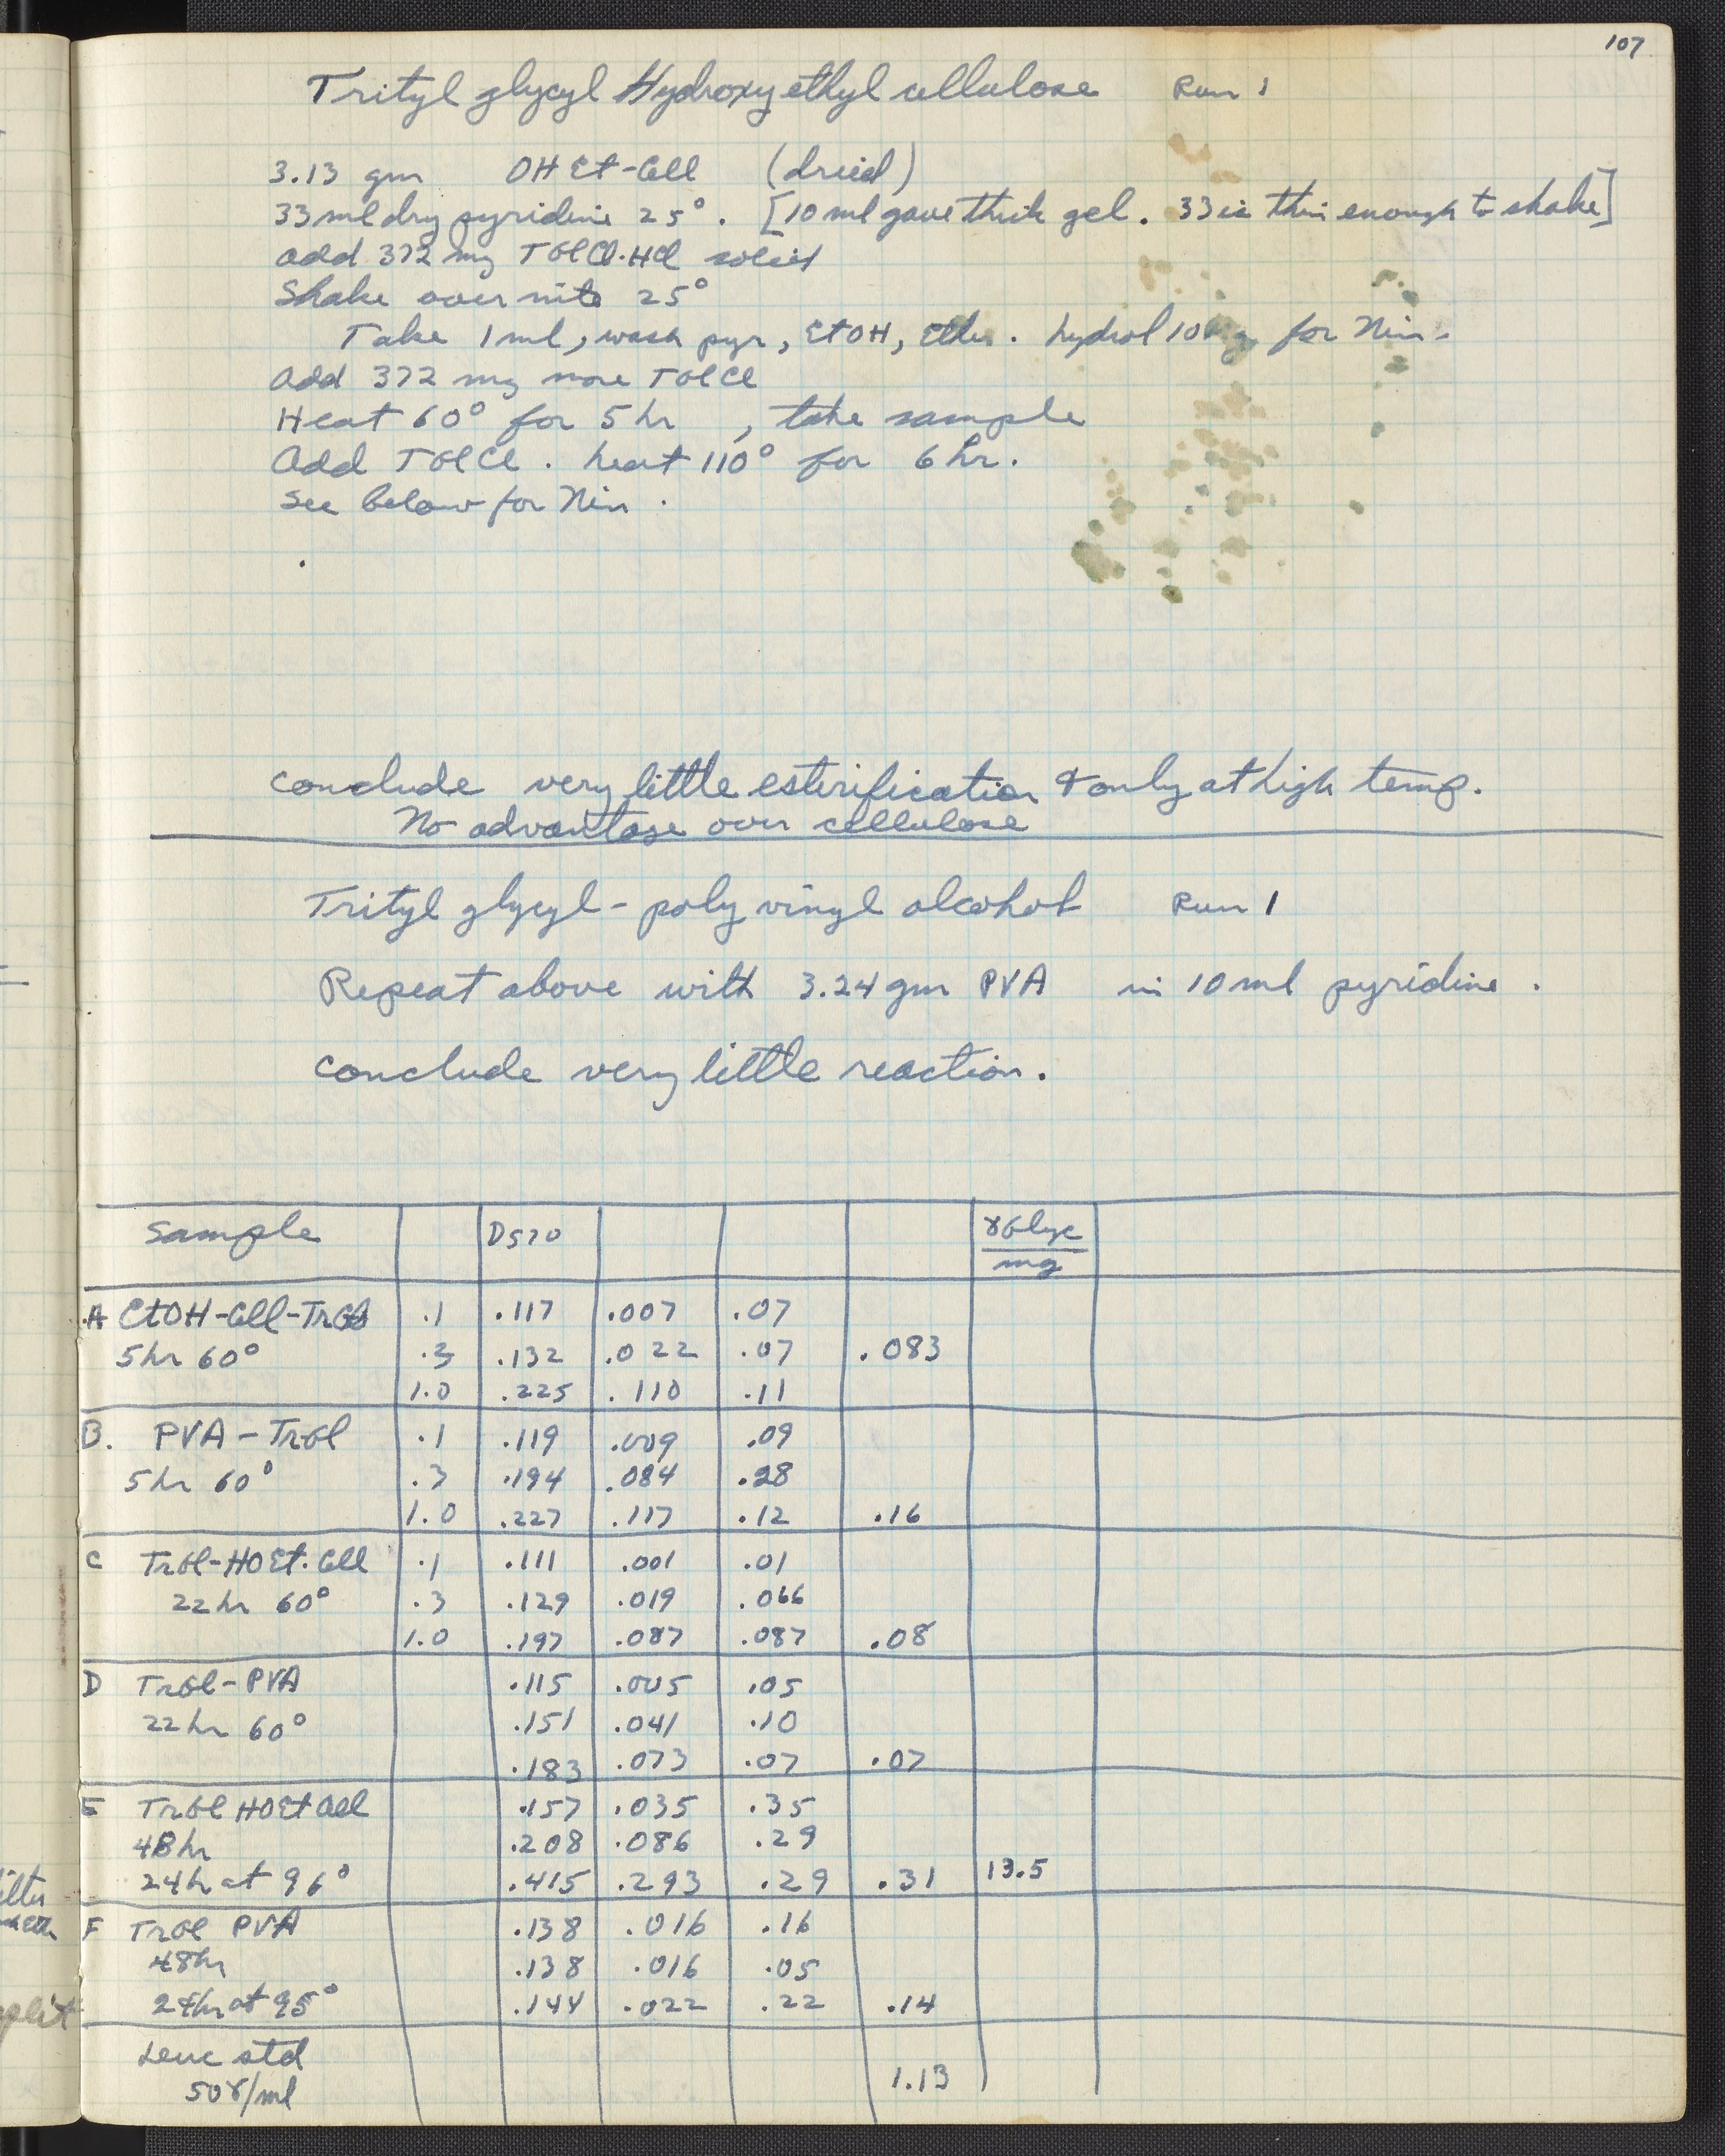 107
Trityl glycyl Hydroxyethyl cellulose Run 1
3.13 gm OH Et-Cell (dried)
33 ml dry pyridine 25°. [10 ml gave thick gel. 33 is thin enough to shake]
Add 372 mg TGlCl·HCl solid
Shake over nite 25°
Take 1 ml, wash pyr, EtOH, Ether. hydrol 10 mg for Nin.
Add 372 mg more TGlCl
Heat 60° for 5 hr , take sample
Add TGlCl. heat 110° for 6 hr.
See below for Nin.
conclude very little esterification & only at high temp.
No advantage over cellulose
Trityl glycyl - poly vinyl alcohol Run 1
Repeat above with 3.24 gm PVA in 10 ml pyridine.
conclude very little reaction.
Sample D570 γGlyc/mg
A EtOH-Cell-TrGl .1 .117 .007 .07
5 hr 60° .3 .132 .022 .07 .083
1.0 .225 .110 .11
B. PVA-TrGl .1 .119 .009 .09
5 hr 60° .3 .194 .084 .28
1.0 .227 .117 .12 .16
C TrGl-HOEt.Cell .1 .111 .001 .01
22 hr 60° .3 .129 .019 .066
1.0 .197 .087 .087 .08
D TrGl-PVA .115 .005 .05
22 hr 60° .151 .041 .10
.183 .073 .07 .07
E TrGl HOEt Cell .157 .035 .35
48 hr .208 .086 .29
24 hr at 96° .415 .293 .29 .31 13.5
F TrGl PVA .138 .016 .16
48 hr .138 .016 .05
24 hr at 95° .144 .022 .22 .14
Leuc std
50γ/ml 1.13
split